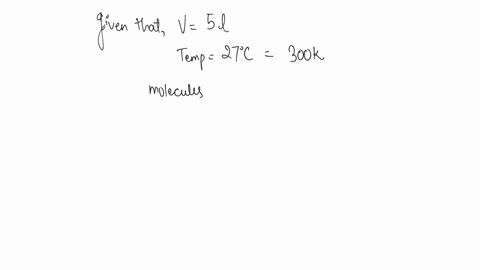 Given that, V = 5l
Temp = 27°C = 300k
molecules